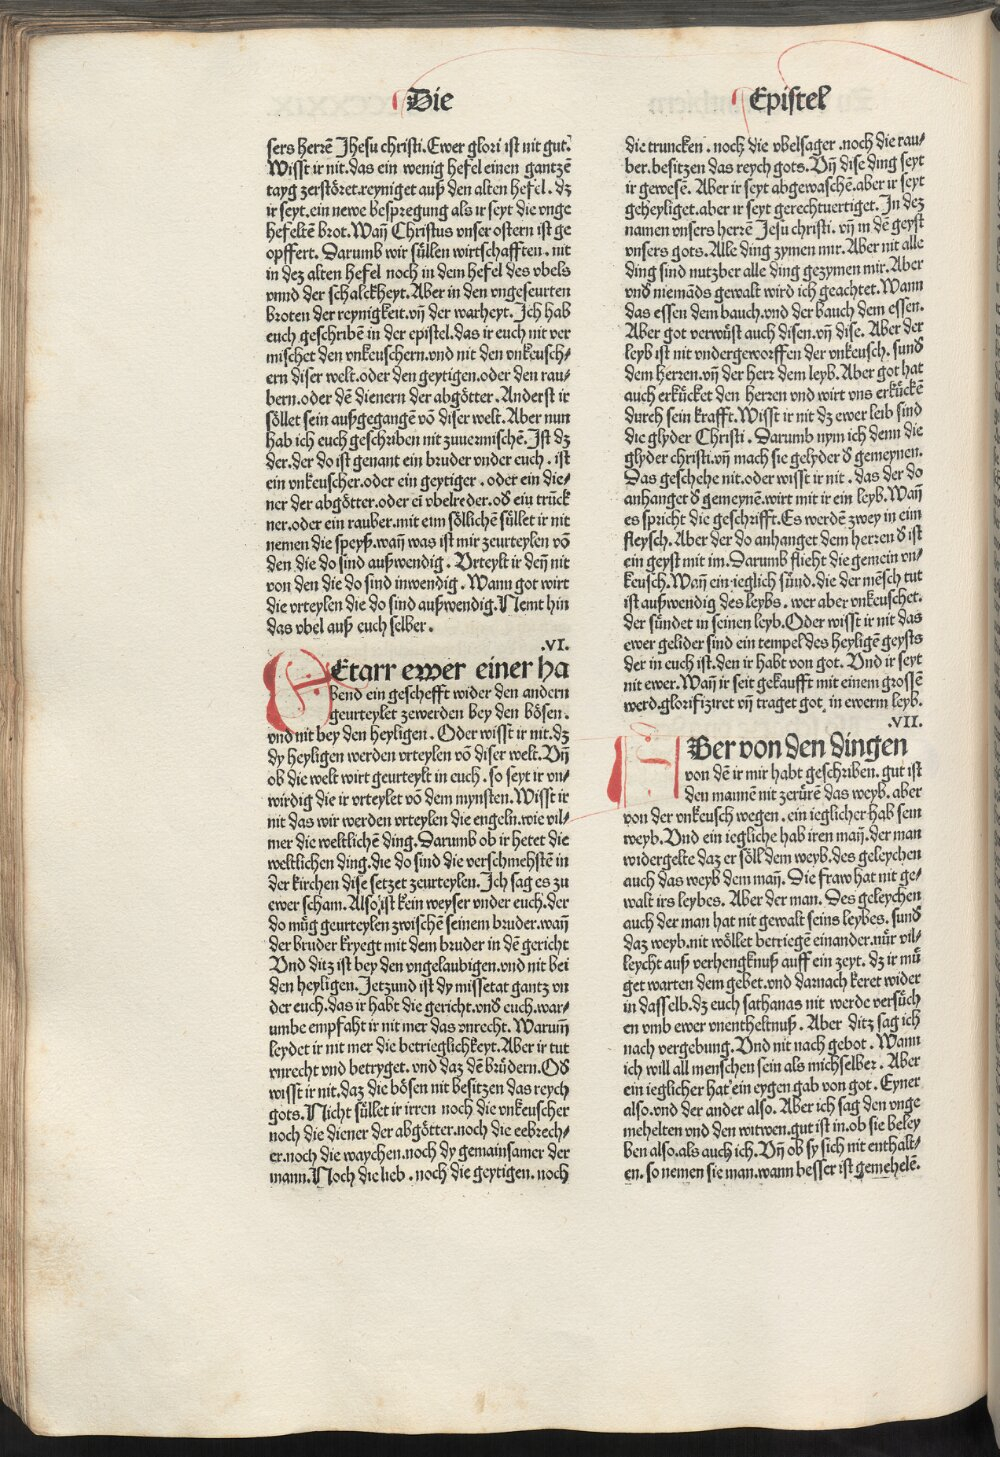 Die
Epistel
sers herrẽ Jhesu christi. Ewer glori ist nit gut.
Wisst ir nit. das ein wenig hefel einen gantzẽ
tayg zerstöret. reyniget auß den alten hefel. dz
ir seyt. ein newe bespregung als ir seyt die vnge
hefeltẽ brot. Wañ Christus vnser ostern ist ge
opffert. Darumb wir süllen wirtschafften. nit
in dez alten hefel noch in dem hefel des vbels
vnnd der schalckheyt. Aber in den vngeseurten
broten der reynigkeit. vñ der warheyt. Jch hab
euch geschribẽ in der epistel. das ir euch nit ver
mischet den vnkeuschern. vnd nit den vnkeusch⸗
ern diser welt. oder den geytigen. oder den rau⸗
bern. oder dẽ dienern der abgötter. Anderst ir
söllet sein außgegangẽ võ diser welt. Aber nun
hab ich euch geschriben nit zuuermischẽ. Jst dz
der. der do ist genant ein bruder vnder euch. ist
ein vnkeuscher. oder ein geytiger. oder ein die⸗
ner der abgötter. oder eĩ vbelreder. oď ein trũck
ner. oder ein rauber. mit eim söllichẽ süllet ir nit
nemen die speyß. wañ was ist mir zeurteylen võ
den die do sind außwendig. Vrteylt ir deñ nit
von den die do sind inwendig. Wann got wirt
die vrteylen die do sind außwendig. Nemt hin
das vbel auß euch selber.
.VI.
Etarr ewer einer ha
bend ein geschefft wider den andern
geurteylet zewerden bey den bösen.
vnd nit bey den heyligen. Oder wisst ir nit. dz
dy heyligen werden vrteylen võ diser welt. Vñ
ob die welt wirt geurteylt in euch. so seyt ir vn⸗
wirdig die ir vrteylet võ dem mynsten. Wisst ir
nit das wir werden vrteylen die engeln. wie vil⸗
mer die weltlichẽ ding. Darumb ob ir hetet die
weltlichen ding. die do sind die verschmehstẽ in
der kirchen dise setzet zeurteylen. Jch sag es zu
ewer scham. Also ist kein weyser vnder euch. der
do müg geurteylen zwischẽ seinem bruder. wañ
der bruder kryegt mit dem bruder in dẽ gericht
Vnd ditz ist bey den vngelaubigen. vnd nit bei
den heyligen. Jetzund ist dy missetat gantz vn
der euch. das ir habt die gericht. vnď euch. war⸗
umbe empfaht ir nit mer das vnrecht. Warumm̃
leydet ir nit mer die betrieglichkeyt. Aber ir tut
vnrecht vnd betryget. vnd daz dẽ brüdern. Oď
wisst ir nit. daz die bösen nit besitzen das reych
gots. Nicht süllet ir irren noch die vnkeuscher
noch die diener der abgötter. noch die eebrech⸗
er. noch die waychen. noch dy gemainsamer der
mann. Noch die lieb. noch die geytigen. noch
die truncken. noch die vbelsager. noch die rau⸗
ber. besitzen das reych gots. Vñ dise ding seyt
ir gewesẽ. Aber ir seyt abgewaschẽ. aber ir seyt
geheyliget. aber ir seyt gerechtuertiget. Jn dez
namen vnsers herrẽ Jesu christi. vñ in dẽ geyst
vnsers gots. Alle ding zymen mir. Aber nit alle
ding sind nutzber alle ding gezymen mir. Aber
vnď niemãds gewalt wird ich geachtet. Wann
das essen dem bauch. vnd der bauch dem essen.
Aber got verwüst auch disen. vñ dise. Aber der
leyb ist nit vndergeworffen der vnkeusch. sunď
dem herren. vñ der herr dem leyb. Aber got hat
auch erkücket den herren vnd wirt vns erkückẽ
durch sein krafft. Wisst ir nit dz ewer leib sind
die glyder Christi. Darumb nym ich denn die
glyder christi. vñ mach sie gelyder ď gemeynen.
Das geschehe nit. oder wisst ir nit. das der do
anhanget ď gemeynẽ. wirt mit ir ein leyb. Wañ
es spricht die geschrifft. Es werdẽ zwey in eim
fleysch. Aber der do anhanget dem herren ď ist
ein geyst mit im. Darumb flieht die gemein vn⸗
keusch. Wañ ein ieglich sünd. die der mẽsch tut
ist außwendig des leybs. wer aber vnkeuschet.
der sündet in seinen leyb. Oder wisst ir nit das
ewer gelider sind ein tempel des heyligẽ geysts
der in euch ist. den ir habt von got. Vnd ir seyt
nit ewer. Wañ ir seit gekaufft mit einem grossẽ
werd. glorifiziret vñ traget got in ewerm leyb.
.VII.
Ber von den dingen
von dẽ ir mir habt geschriben. gut ist
den mannẽ nit zerürẽ das weyb. aber
von der vnkeusch wegen. ein ieglicher hab sein
weyb. Vnd ein iegliche hab iren mañ. der man
widergelte daz er söll dem weyb. des geleychen
auch das weyb dem mañ. Die fraw hat nit ge⸗
walt irs leybes. Aber der man. Des geleychen
auch der man hat nit gewalt seins leybes. sunď
daz weyb. nit wöllet betriegẽ einander. nür vil⸗
leycht auß verhengknuß auff ein zeyt. dz ir mü
get warten dem gebet. vnd darnach keret wider
in dasselb. dz euch sathanas nit werde versüch
en vmb ewer vnentheltnuß. Aber ditz sag ich
nach vergebung. Vnd nit nach gebot. Wann
ich will all menschen sein als mich selber. Aber
ein ieglicher hat ein eygen gab von got. Eyner
also. vnd der ander also. Aber ich sag den vnge
mehelten vnd den witwen. gut ist in. ob sie beley
ben also. als auch ich. Vñ ob sy sich nit enthalt⸗
en. so nemen sie man. wann besser ist gemehelẽ.